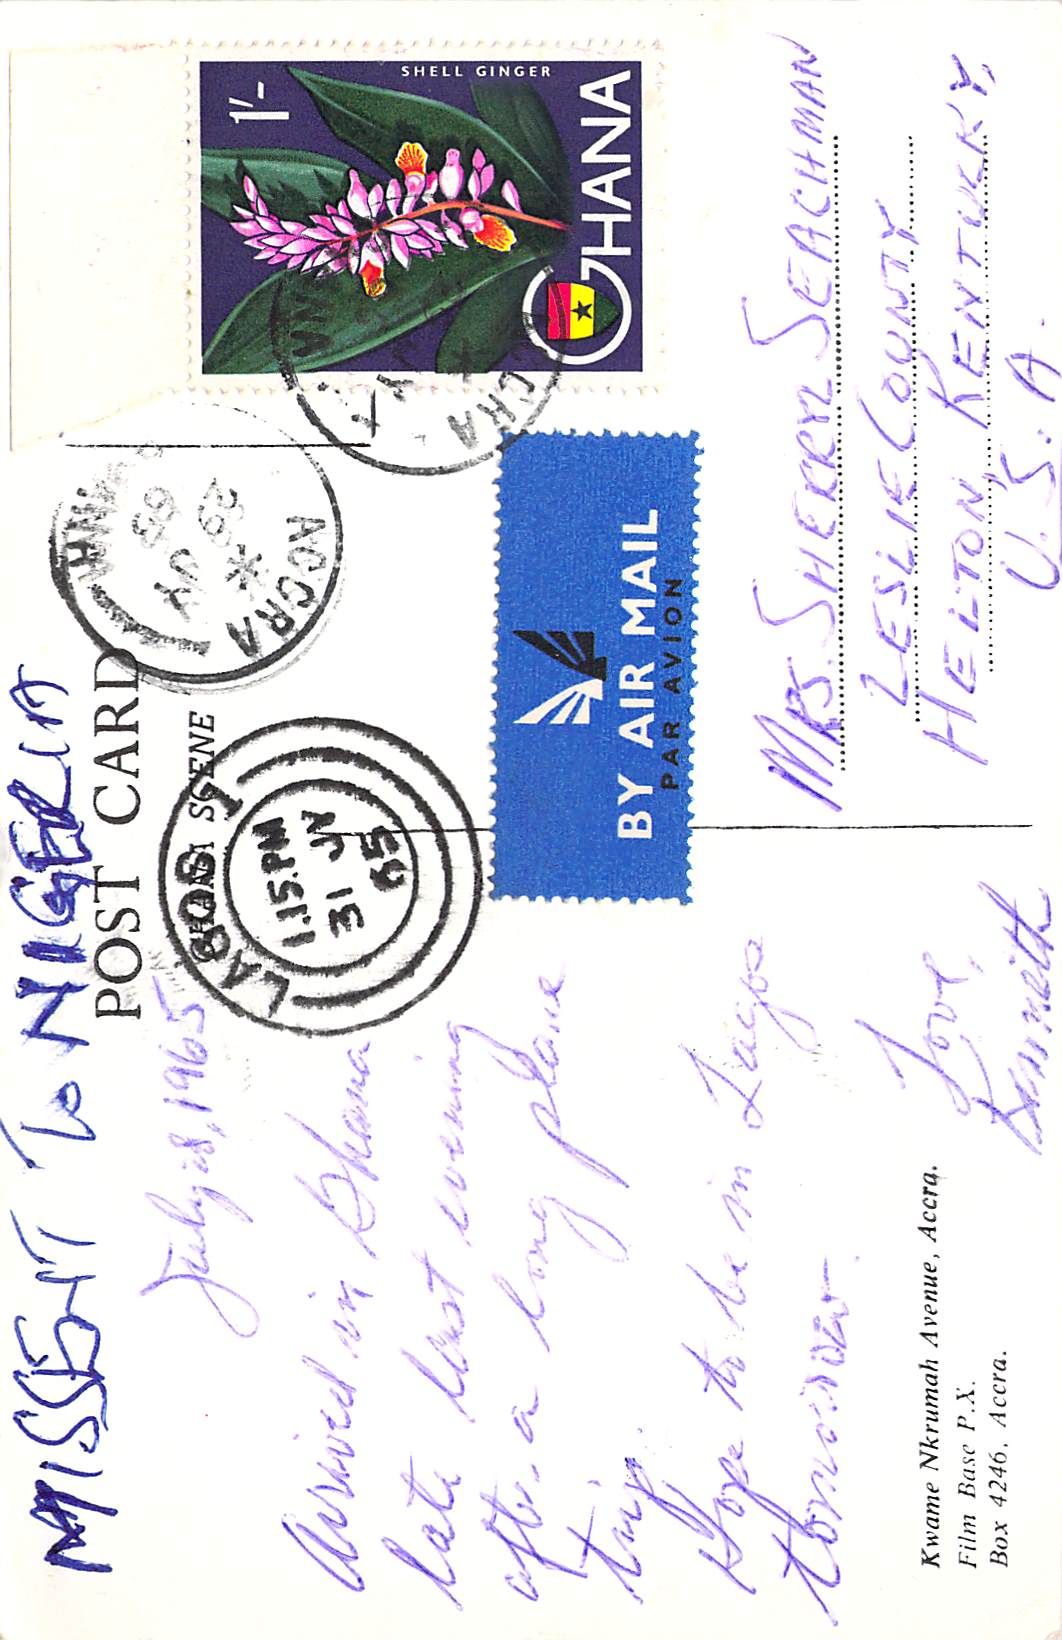 MISSENT TO NIGERIA
POST CARD
GHANA SCENE
July 28, 1965
Arrived in Ghana
late last evening
after a long plane
trip.
Hope to be in Lagos
tomorrow.
Love,
Kwame Nkrumah Avenue, Accra.
Film Base P.X.
Box 4246, Accra.
SHELL GINGER
1/-
GHANA
ACCRA
ACCRA
29 JY
65
GHANA
LAGOS 1
1.15.PM
31 JY
65
BY AIR MAIL
PAR AVION
MRS. SHERRYL SEACHMAN
LESLIE COUNTY
HELTON, KENTUCKY,
U.S.A